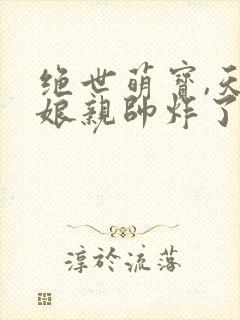 绝世萌寶,天
娘親帥炸了
淳於流落